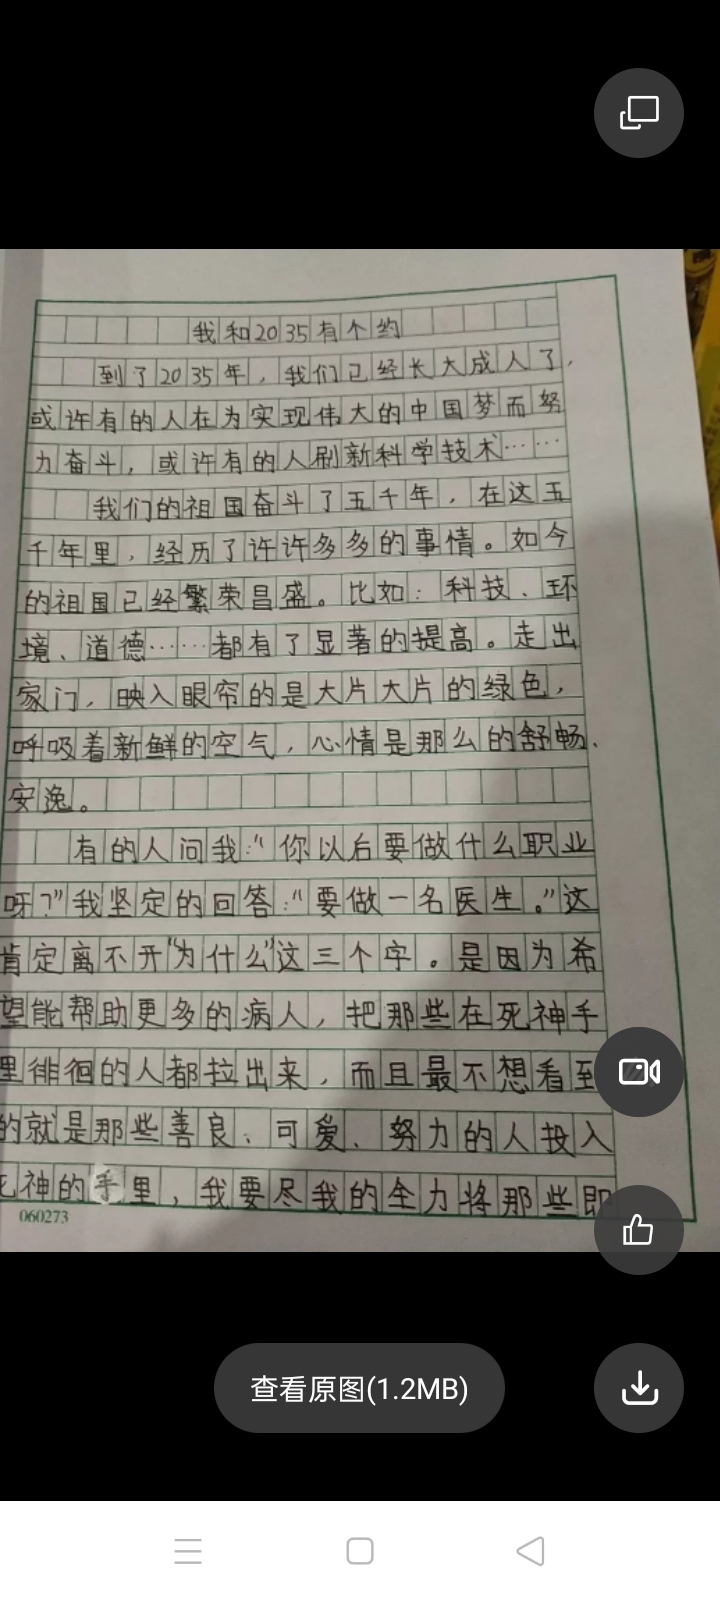 我和2035有个约
到了2035年，我们已经长大成人了，
或许有的人在为实现伟大的中国梦而努
力奋斗，或许有的人刷新科学技术……
我们的祖国奋斗了五千年，在这五
千年里，经历了许许多多的事情。如今
的祖国已经繁荣昌盛。比如：科技、环
境、道德……都有了显著的提高。走出
家门，映入眼帘的是大片大片的绿色，
呼吸着新鲜的空气，心情是那么的舒畅、
安逸。
有的人问我：“你以后要做什么职业
呀？”我坚定的回答：“要做一名医生。”这
肯定离不开“为什么”这三个字。是因为希
望能帮助更多的病人，把那些在死神手
里徘徊的人都拉出来，而且最不想看到
的就是那些善良、可爱、努力的人投入
死神的手里，我要尽我的全力将那些即
060273
查看原图(1.2MB)